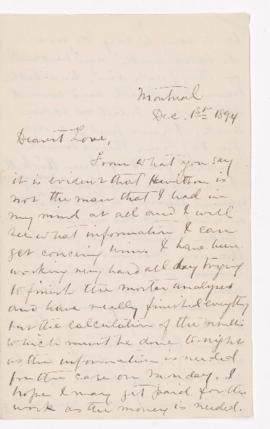 Montreal
Dec. 1st 1894
Dearest Love,
From what you say
it is evident that is
not the man that I had in
my mind at all and I will
see what information I can
get concerning him. I have been
working very hard all day trying
to finish the mortar analyses
and have really finished everything
but the calculation of the results
which must be done to-night
as the information is needed
for the case on Monday. I
hope I may get paid for the
work as the money is needed.